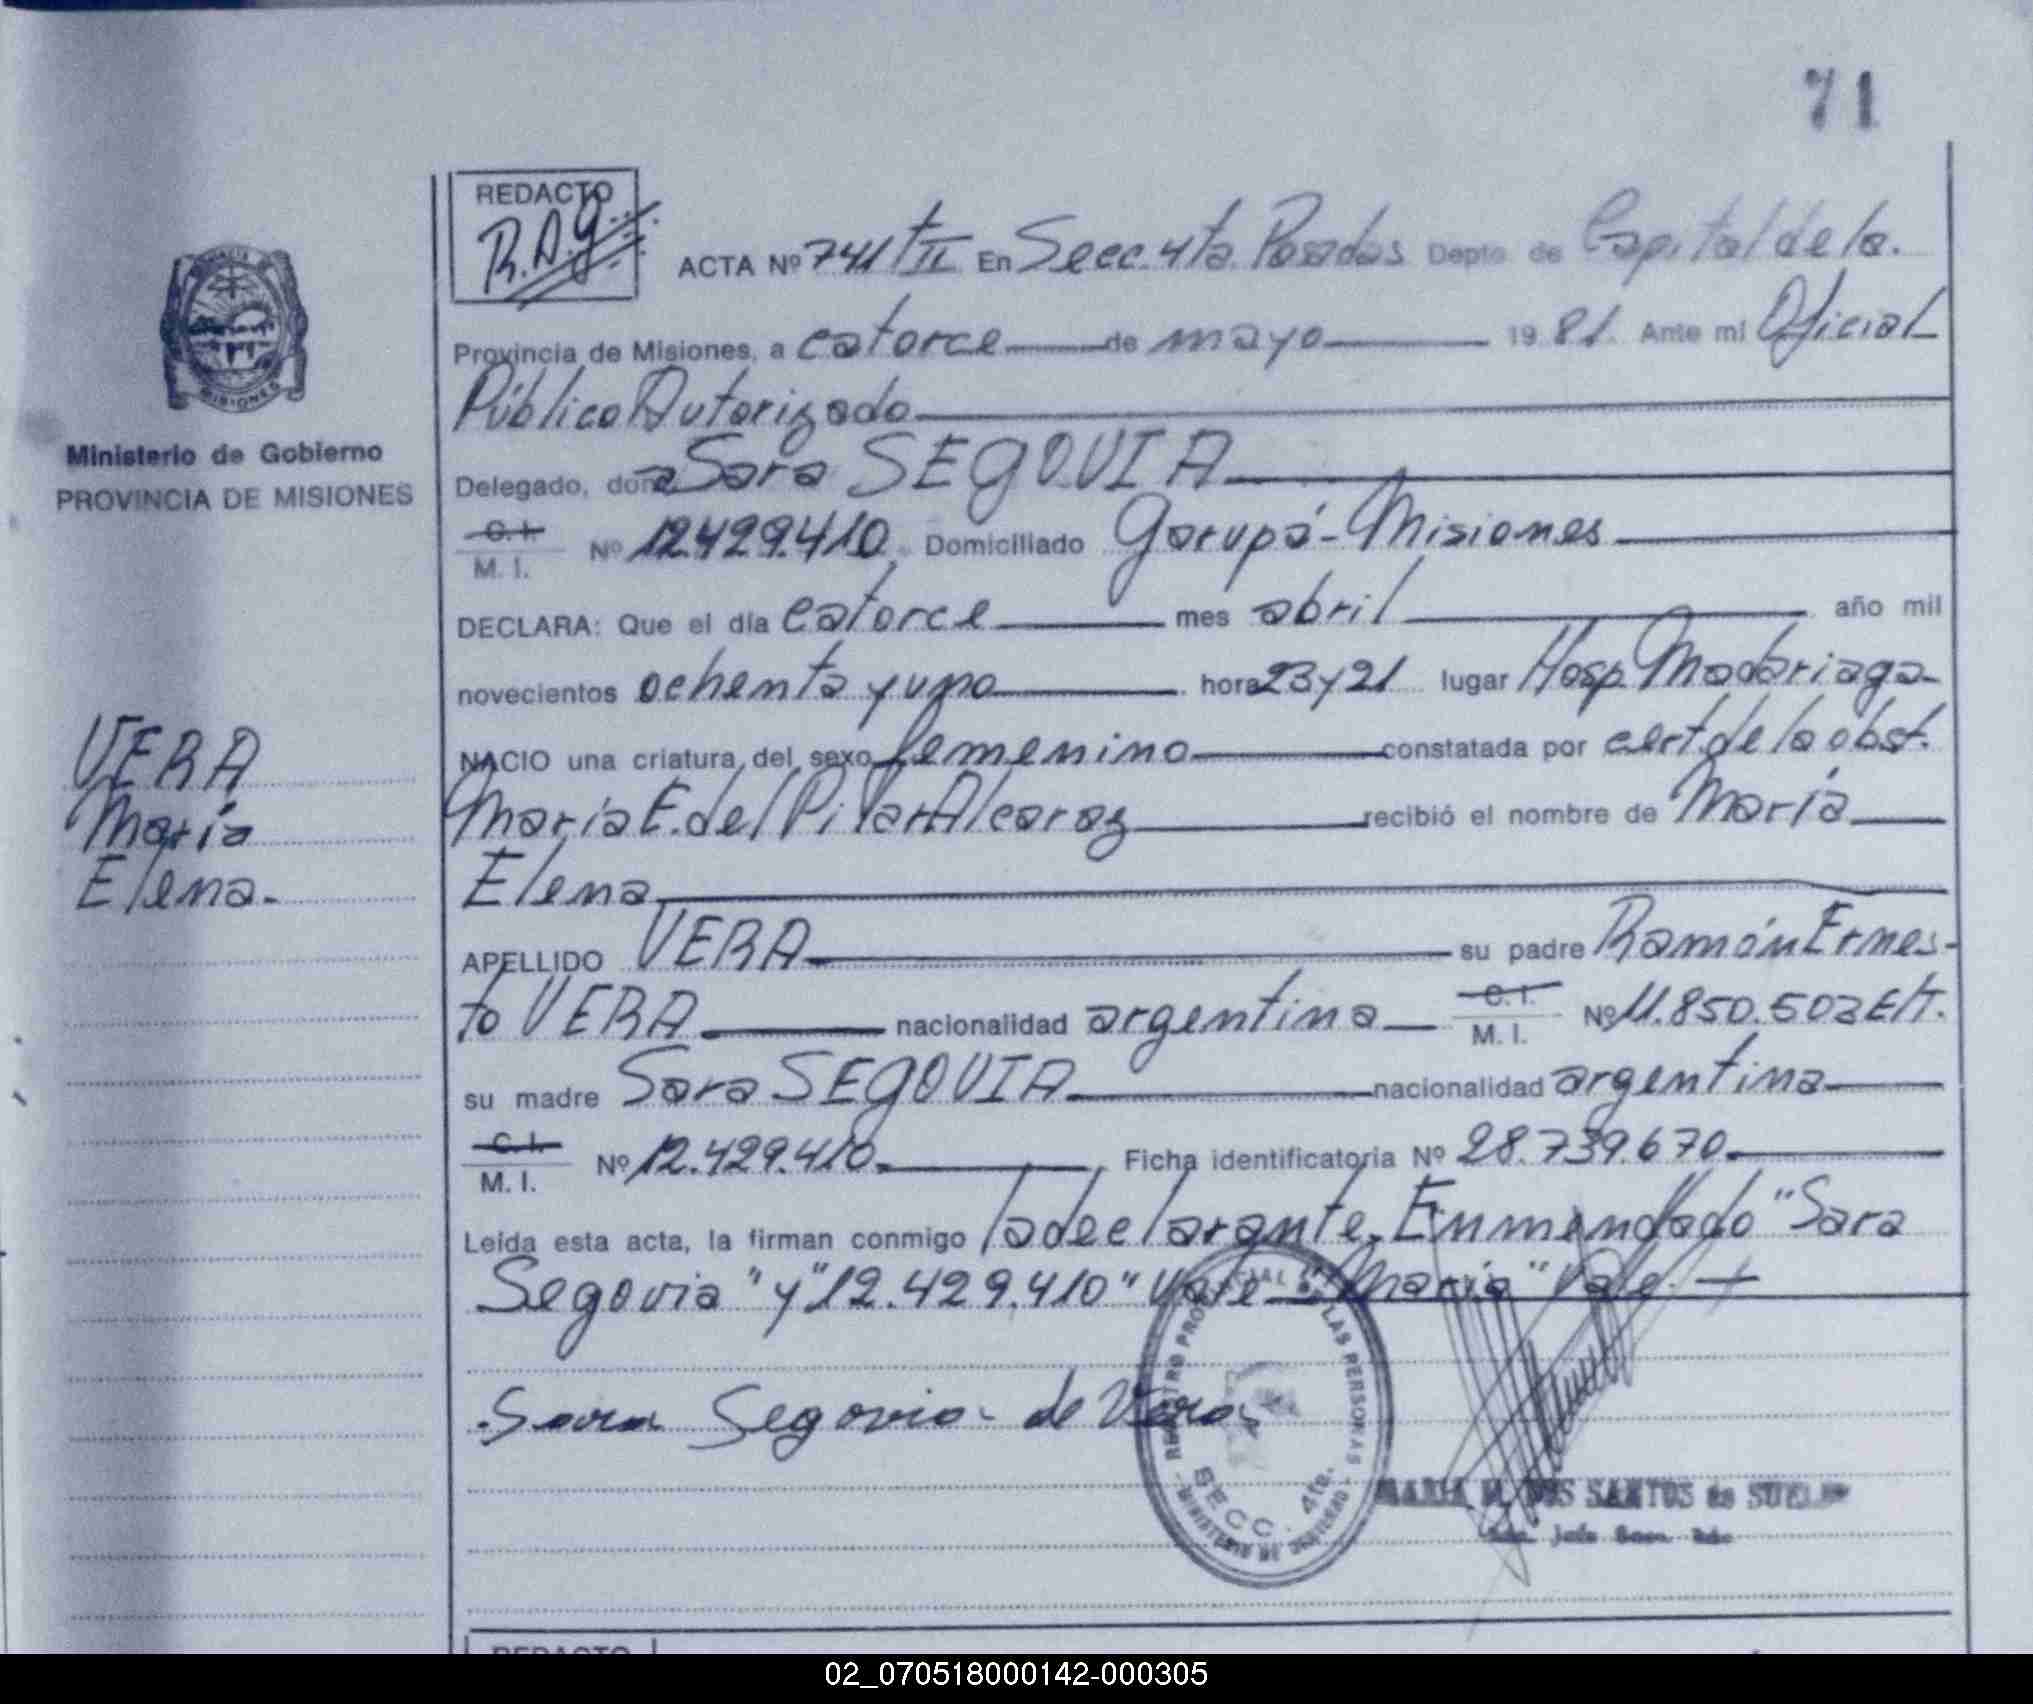 71
REDACTO
R.A.g
ACTA Nº 741 tºII En Secc. 4ta. Posadas Depto. de Capital de la.
Provincia de Misiones, a catorce de mayo 19 81. Ante mí Oficial
Público Autorizado
MISIONES
Ministerio de Gobierno
PROVINCIA DE MISIONES
Delegado, doña Sara SEGOVIA
C. I.
M. I. Nº 12.429.410. Domiciliado Garupá-Misiones
DECLARA: Que el día catorce mes abril año mil
novecientos ochenta y uno hora 23 y 21 lugar Hosp. Madariaga-
NACIO una criatura del sexo femenino constatada por cert. de la obst.
VERA
María
Elena.
María E. del Pilar Alcaraz recibió el nombre de María
Elena
APELLIDO VERA su padre Ramón Ernes-
to VERA nacionalidad argentina C. I.
M. I. Nº 11.850.503 E/T.
su madre Sara SEGOVIA nacionalidad argentina
C. I.
M. I. Nº 12.429.410. Ficha identificatoria Nº 28.739.670.
Leída esta acta, la firman conmigo la declarante. Enmendado "Sara
Segovia" y "12.429.410" Vale "María" Vale.
Sara Segovia de Vera
REGISTRO PROVINCIAL DE LAS PERSONAS
SECC. 4ta.
MARIA DOS SANTOS de
REDACTO
02_070518000142-000305